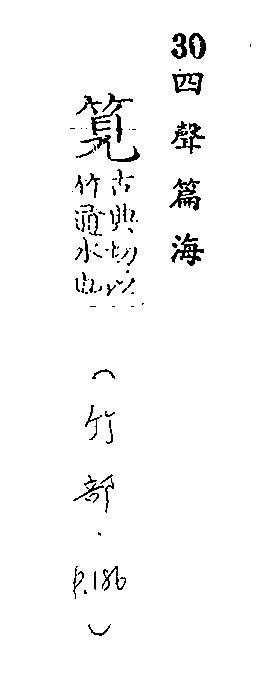 30四聲篇海
筧
古典切以
竹通水也
(竹部.P.186)